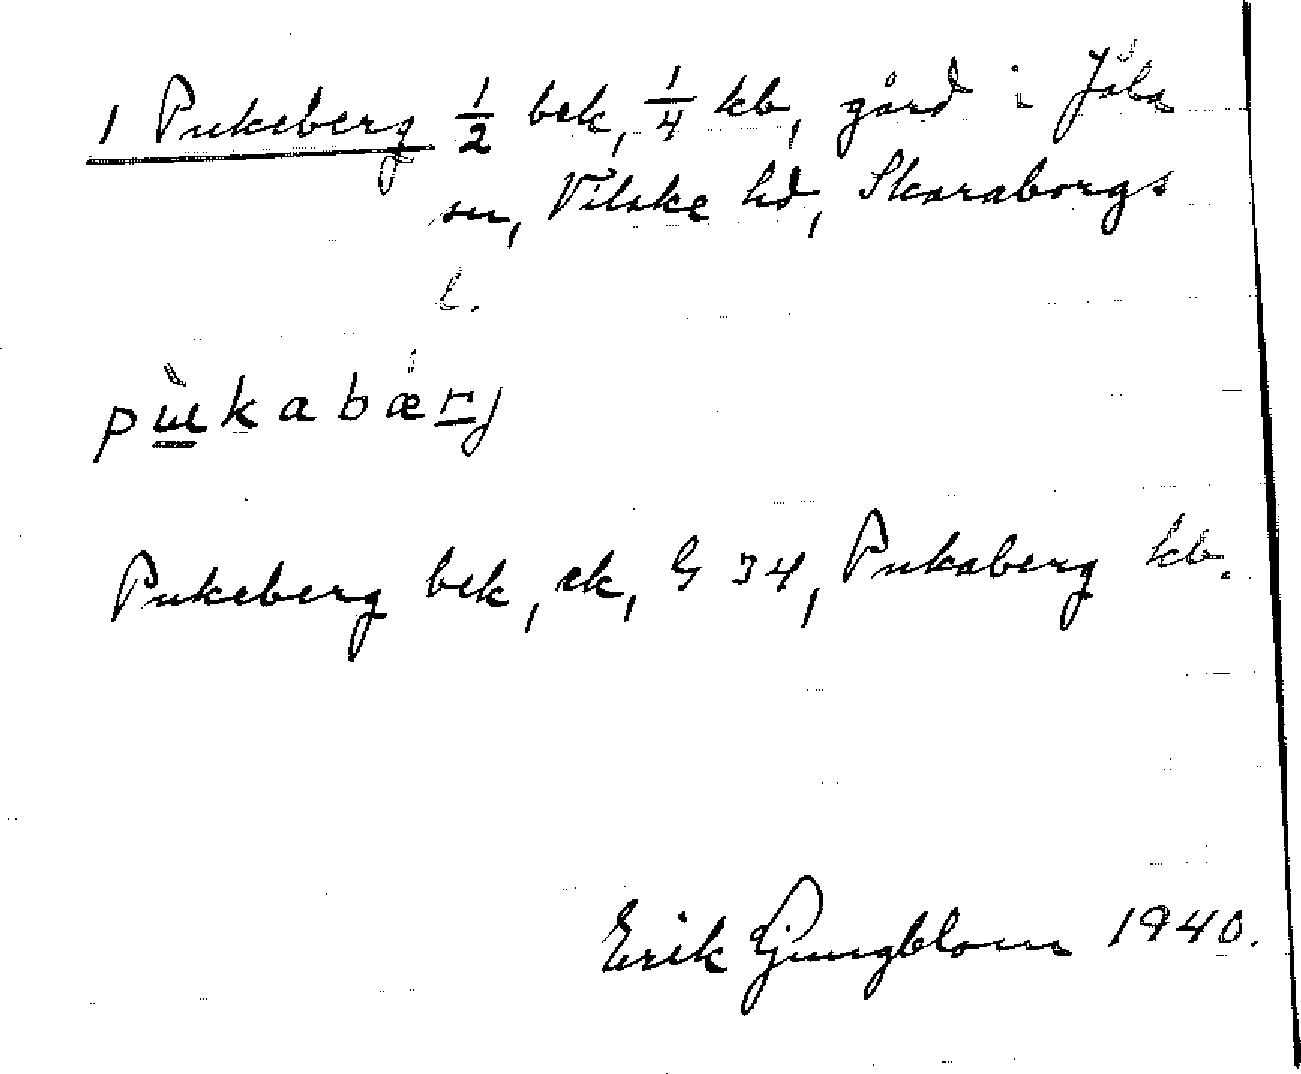 1 Pukeberg 1/2 bek, 1/4 kb, gård i Jäla
sn, Vilske hd, Skaraborgs
l.
pùkabærj
Pukeberg bek, ek, G 34, Pukaberg kb.
Erik Ljungblom 1940.